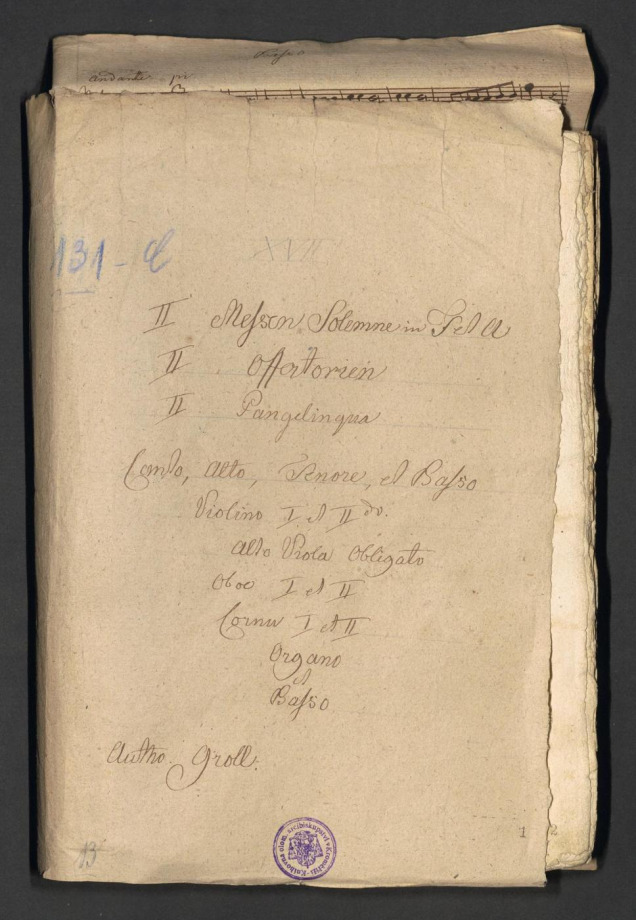 Basso
Andante
131-
XVII
II Messen Solemne in F et A
II Offertorien
II Pangelingua
Canto, Alto, Tenore, et Basso
Violino I et II do.
Alto Viola Obligato
Oboe I et II
Cornu I et II
Organo
et
Basso
Autho. Groll.
13
1 2